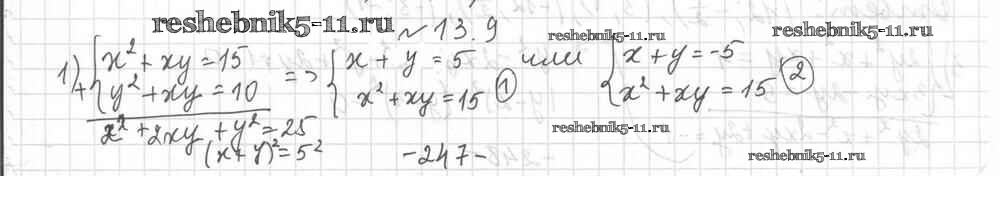 reshebnik5-11.ru № 13.9 reshebnik5-11.ru reshebnik5-11.ru
1) + { x² + xy = 15 => { x + y = 5 или { x + y = -5
y² + xy = 10 x² + xy = 15 ① x² + xy = 15 ②
x² + 2xy + y² = 25 reshebnik5-11.ru
(x + y)² = 5² -247- reshebnik5-11.ru